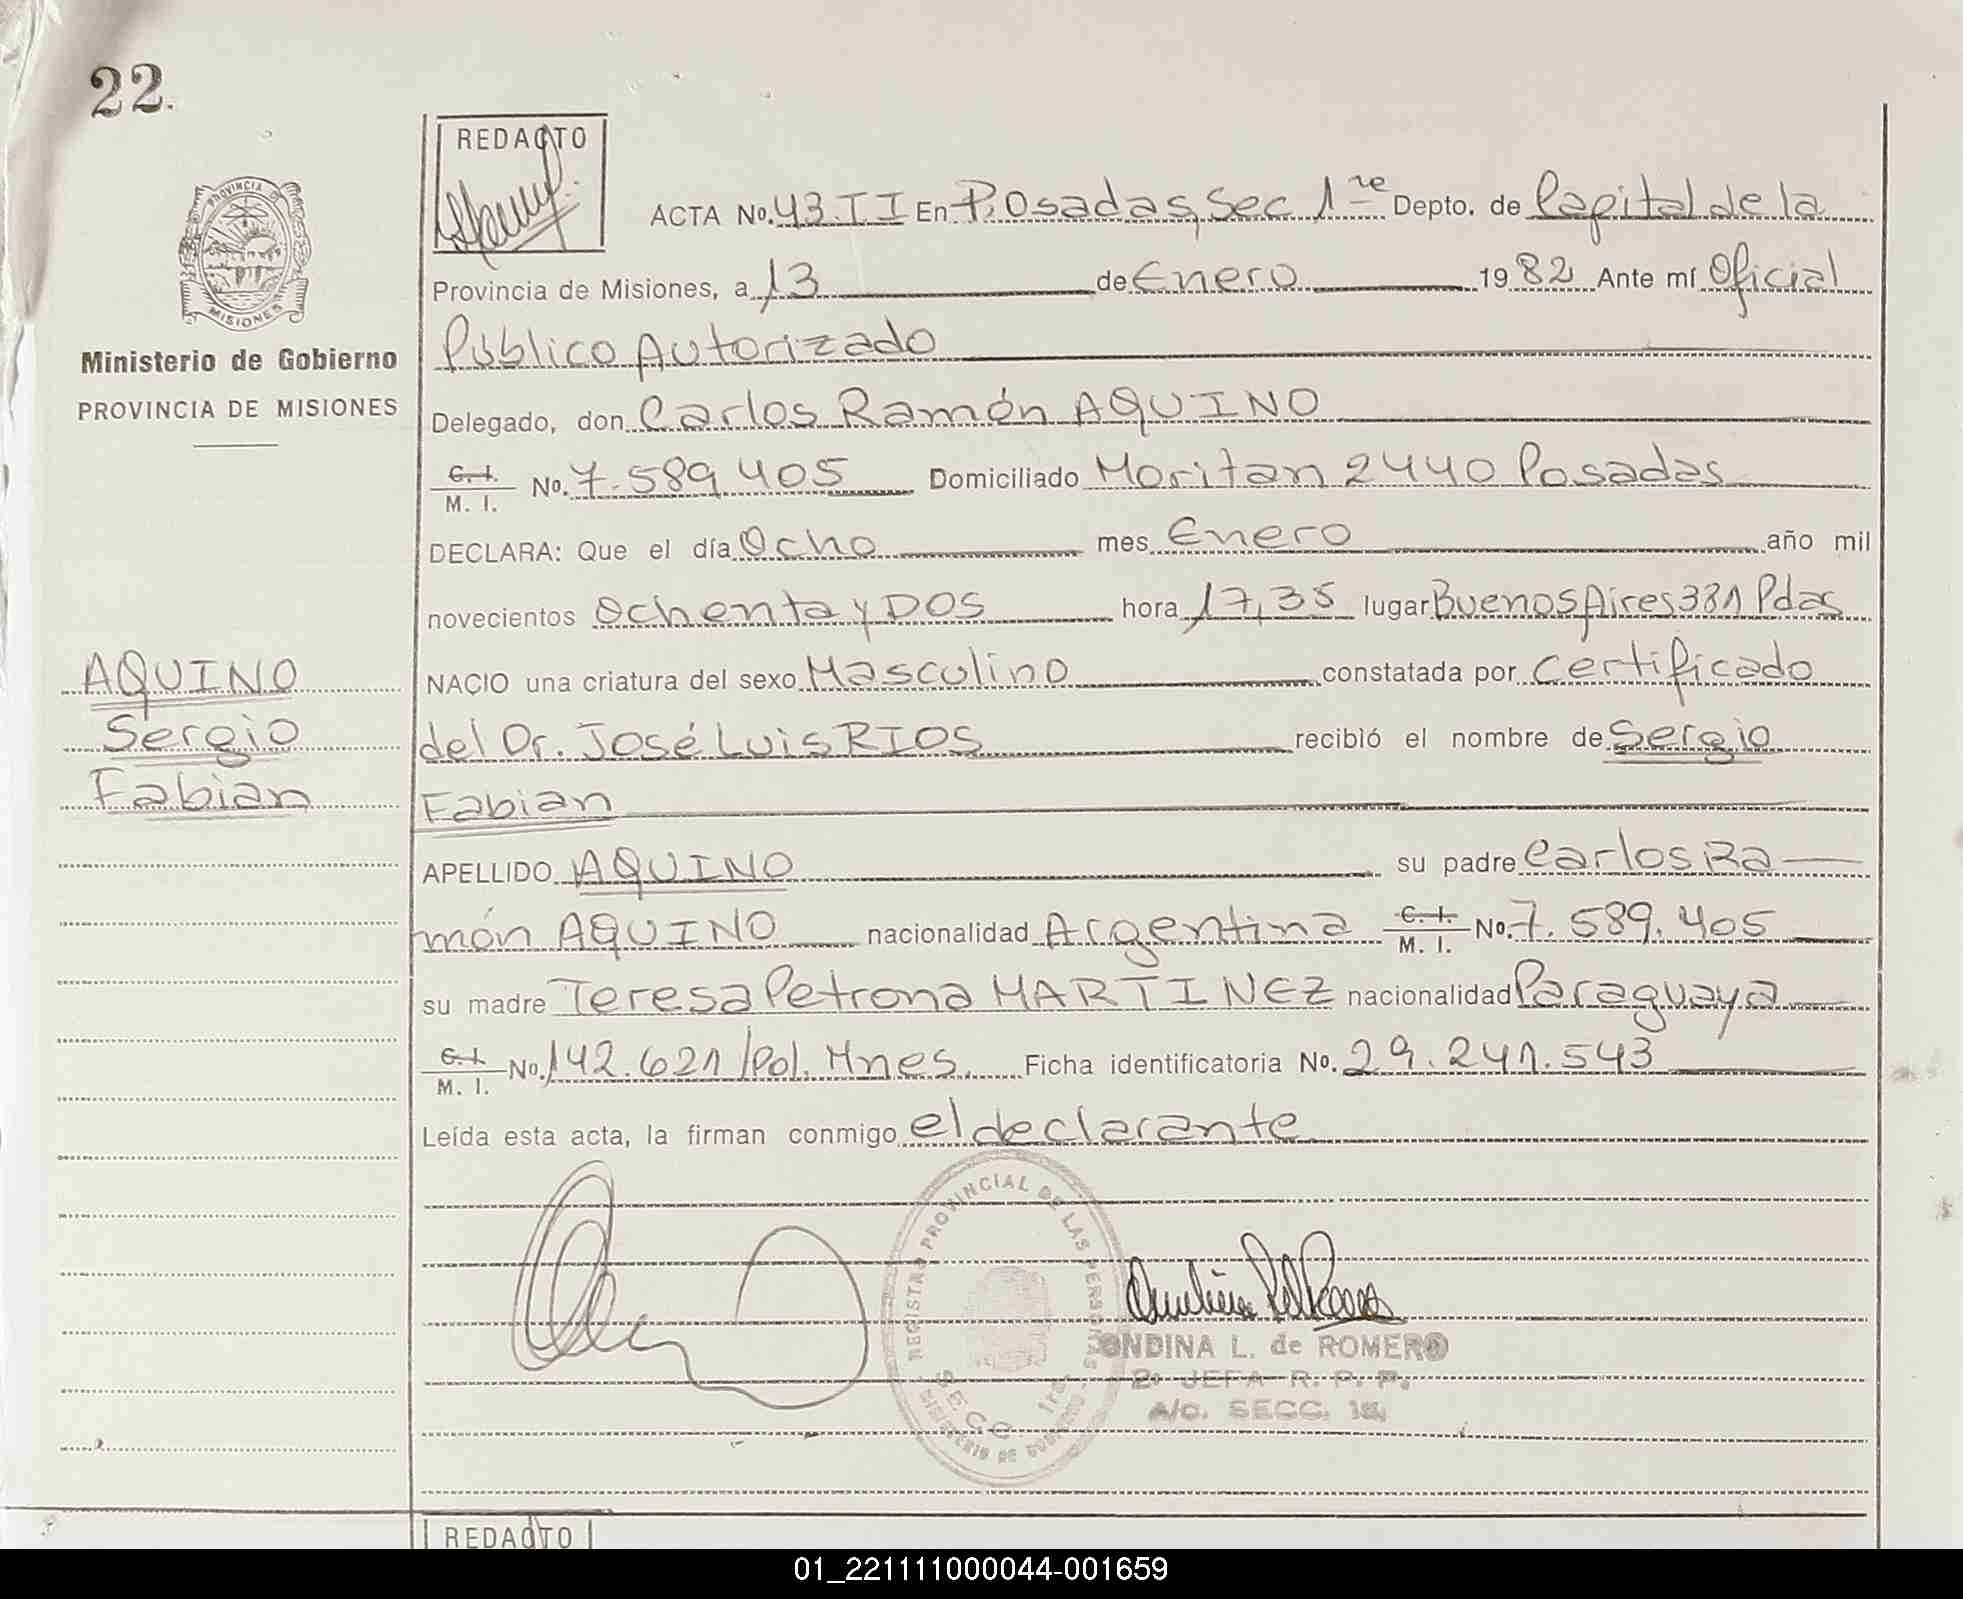 22.
REDACTO
ACTA No. 43.II En Posadas, Sec 1re Depto. de Capital de la
Provincia de Misiones, a 13 de Enero 1982 Ante mí Oficial
Público Autorizado
Delegado, don Carlos Ramón AQUINO
C. I.
M. I. No. 7.589.405 Domiciliado Moritan 2440 Posadas
DECLARA: Que el día Ocho mes Enero año mil
novecientos Ochenta y DOS hora 17,35 lugar Buenos Aires 331 Pdas
NACIO una criatura del sexo Masculino constatada por Certificado
del Dr. José Luis RIOS recibió el nombre de Sergio
Fabian
APELLIDO AQUINO su padre Carlos Ra
món AQUINO nacionalidad Argentina C. I. M. I. No. 7.589.405
su madre Teresa Petrona MARTINEZ nacionalidad Paraguaya
C. I.
M. I. No. 142.621/Pol. Mnes. Ficha identificatoria No. 29.241.543
Leída esta acta, la firman conmigo el declarante
PROVINCIA
MISIONES
Ministerio de Gobierno
PROVINCIA DE MISIONES
AQUINO
Sergio
Fabian
REGISTRO PROVINCIAL DE LAS PERSONAS
SECC. 1ra.
MINISTERIO DE GOBIERNO
ONDINA L. de ROMERO
2º JEFA R. P. P.
A/C. SECC. 1ª
REDACTO
01_221111000044-001659